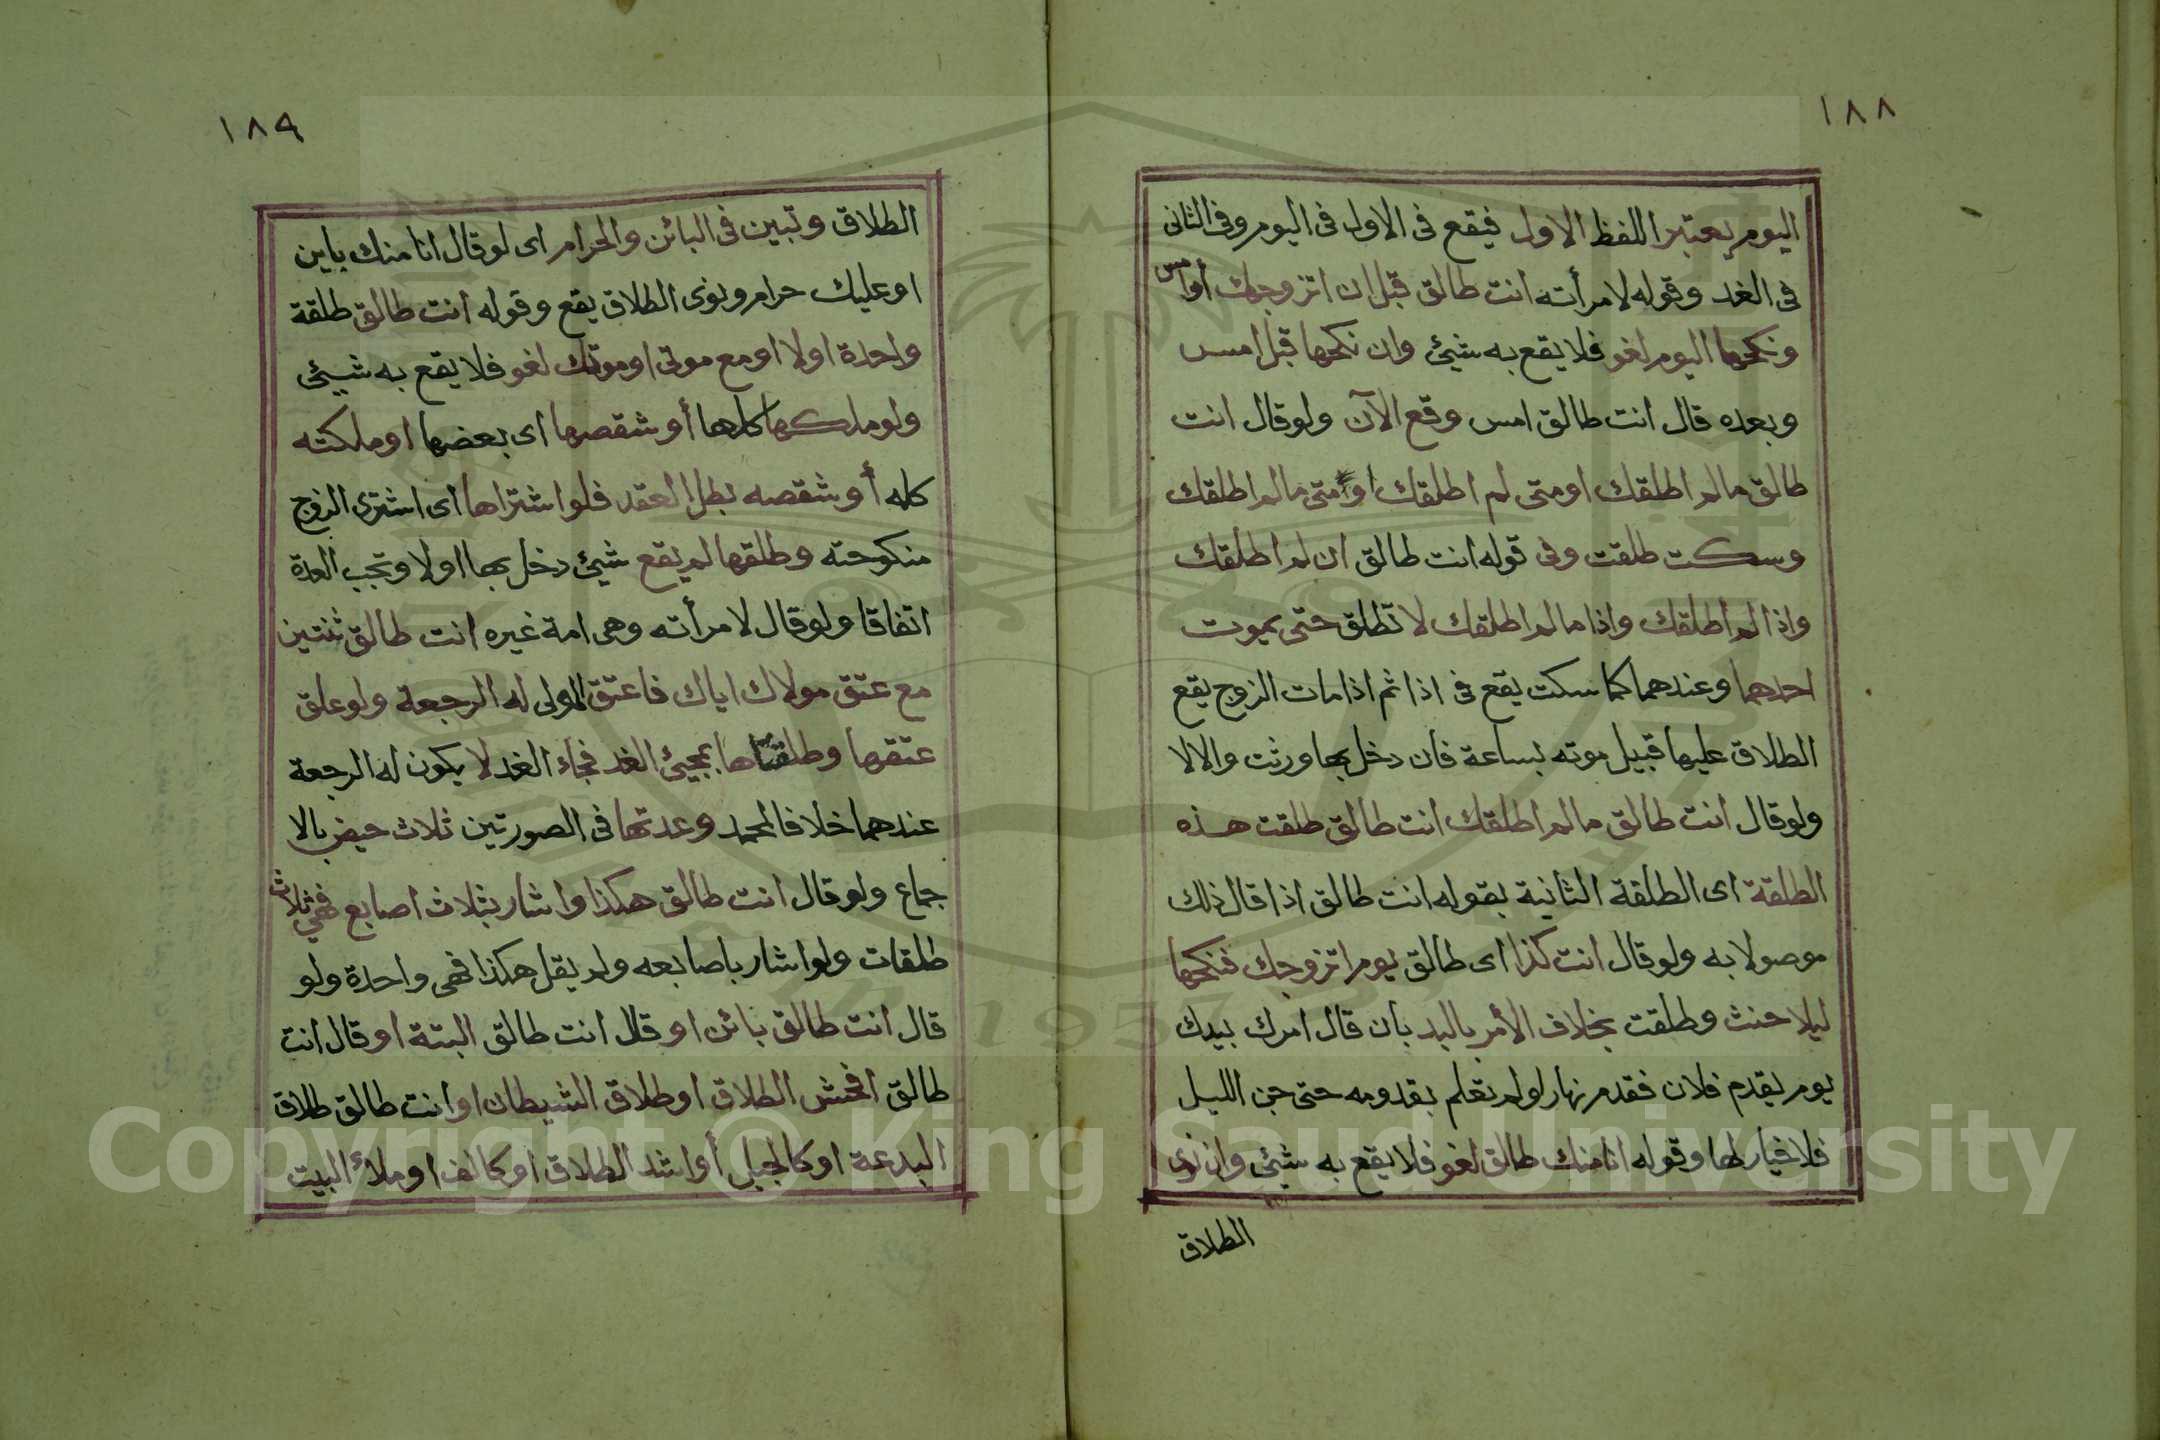 ١٨٨
اليوم يعتبر اللفظ الاول فيقع فى الاول فى اليوم وفى الثانى
فى الغد وقوله لامرأته انت طالق قبل ان اتزوجك أو امس
ونكحها اليوم لغو فلا يقع به شيئ وان نكحها قبل امس
وبعده قال انت طالق امس وقع الآن ولو قال انت
طالق ما لم اطلقك او متى لم اطلقك او متى ما لم اطلقك
وسكت طلقت وفى قوله انت طالق ان لم اطلقك
واذا لم اطلقك واذا ما لم اطلقك لا تطلق حتى يموت
احدهما وعندهما كما سكت يقع فى اذا ثم اذا مات الزوج يقع
الطلاق عليها قبيل موته بساعة فان دخل بها ورثت والا لا
ولو قال انت طالق ما لم اطلقك انت طالق طلقت هذه
الطلقة اى الطلقة الثانية بقوله انت طالق اذا قال ذلك
موصولا به ولو قال انت كذا اى طالق يوم اتزوجك فنكحها
ليلا حنث وطلقت بخلاف الأمر باليد بان قال امرك بيدك
يوم يقدم فلان فقدم نهارا ولم تعلم بقدومه حتى جن الليل
فلا خيار لها وقوله انا منك طالق لغو فلا يقع به شيئ وان نوى
الطلاق
١٨٩
الطلاق وتبين فى البائن والحرام اى لو قال انا منك باين
او عليك حرام ونوى الطلاق يقع وقوله انت طالق طلقة
واحدة اولا او مع موتى او موتك لغو فلا يقع به شيئ
ولو ملكها كلها أو شقصها اى بعضها او ملكته
كله أو شقصه بطل العقد فلو اشتراها اى اشترى الزوج
منكوحته وطلقها لم يقع شيئ دخل بها اولا وتجب العدة
اتفاقا ولو قال لامرأته وهى امة غيره انت طالق ثنتين
مع عتق مولاك اياك فاعتق المولى له الرجعة ولو علق
عتقها وطلقتاها بمجيئ الغد فجاء الغد لا يكون له الرجعة
عندهما خلافا لمحمد وعدتها فى الصورتين ثلاث حيض بالا
جماع ولو قال انت طالق هكذا واشار بثلاث اصابع فهي ثلاث
طلقات ولو اشار باصابعه ولم يقل هكذا فهى واحدة ولو
قال انت طالق بائن او قال انت طالق البتة او قال انت
طالق افحش الطلاق او طلاق الشيطان او انت طالق طلاق
البدعة او كالجبل أو اشد الطلاق او كالف او ملأ البيت
Copyright © King Saud University
1957